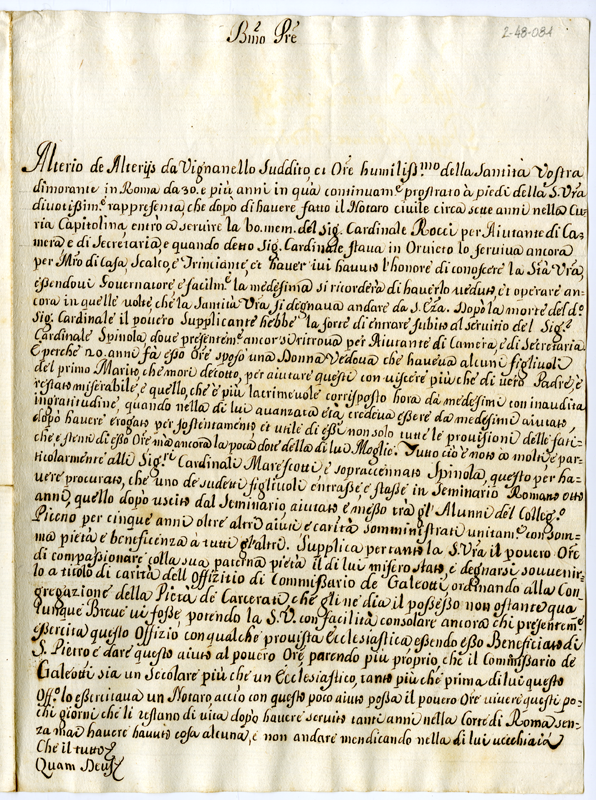 B.mo Pre
2-48-081
Alterio de Alterijs da Vignanello suddito et Ore humiliss.mo della Santità Vostra
dimorante in Roma da 30. e più anni in quà continuam.e prostrato à piedi della S. Vra
divotissim.e rappresenta, che dopo di havere fatto il Notaro civile circa sette anni nella Cu-
ria Capitolina entrò a servire la bo. mem. del Sig. Cardinale Rocci per Aiutante di Ca-
mera e di Secretaria, e quando detto Sig. Cardinale stava in Orvieto lo serviva ancora
per Mro di Casa Scalco, e Trinciante, et haver ivi havuto l'honore di conoscere la Stà Vra,
essendovi Governatore e facilm.e la medesima si ricorderà di haverlo veduto, et operare an-
cora in quelle volte, che la Santità Vra, si degnava andare da S. Eza. Dopo la morte del d.o
Sig. Cardinale il povero Supplicante hebbe la sorte di entrare subito al servitio del Sig.r
Cardinale Spinola dove presentem.e ancor si ritrova per Aiutante di Camera, e di Secretaria
E perche 20. anni fà esso Ore sposò una Donna Vedova che haveva alcuni figlivoli
del primo Marito, che morì decotto, per aiutare questi con viscere più che di vero Padre, è
restato miserabile, e quello, che è più lacrimevole corrisposto hora da medesimi con inaudita
ingratitudine, quando nella di lui avanzata età, credeva essere da medesimi aiutato,
dopò havere erogato per sostentamento et utile di essi non solo tutte le provisioni delle fati-
che, e stenti di esso Ore mà ancora la poca dote della di lui Moglie. Tutto ciò è noto a molti e par-
ticolarmente alli Sig.ri Cardinali Marescotti e sopraccennato Spinola, questo per ha-
vere procurato, che uno de sudetti figlivoli entrasse, e stasse in Seminario Romano otto
anni, quello dopo uscito dal Seminario aiutato e messo trà gl'Alunni del Colleg.o
Piceno per cinque anni oltre altri aiuti e carità somministrati unitam.e con som-
ma pietà e beneficenza à tutti gl'altri. Supplica per tanto la S. Vra il povero Ore
di compassionare colla sua paterna pietà il di lui misero stato, e degnarsi souvenir-
lo a titolo di carità dell Offizitio di Commissario de Galeotti, ordinando alla Con-
gregazione della Pietà de Carcerati che gli ne dia il possesso non ostante qua-
lunque Breve vi fosse, potendo la S. V. con facilità consolare ancora chi presentem.e
essercita questo Offizio con qualche provista Ecclesiastica essendo esso Beneficiato di
S. Pietro e dare questo aiuto al povero Ore parendo più proprio, che il Commissario de
Galeotti sia un Secolare più che un Ecclesiastico, tanto più che prima di lui questo
Off.o lo essercitava un Notaro acciò con questo poco aiuto possa il povero Ore vivere questi po-
chi giorni che li restano di vita dopò havere servito tanti anni nella Corte di Roma sen-
za mai havere havuto cosa alcuna, e non andare mendicando nella di lui vecchiaia
Che il tutto
Quam Deus